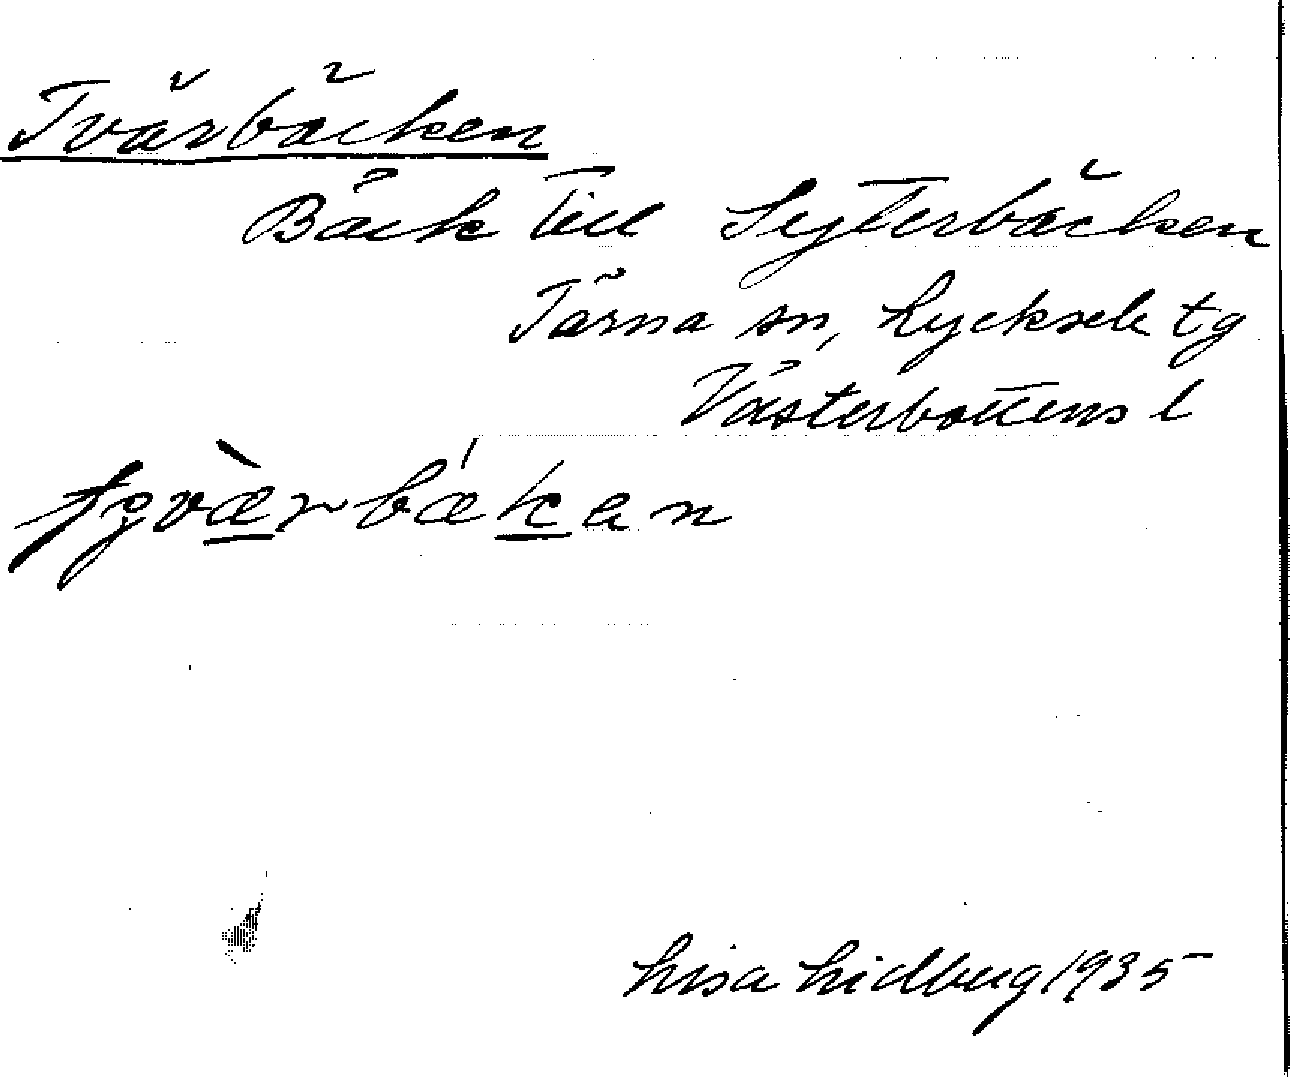 Tvärbäcken
Bäck till Syterbäcken
Tärna sn, Lycksele tg
Västerbottens l
Lisa Lidberg 1935